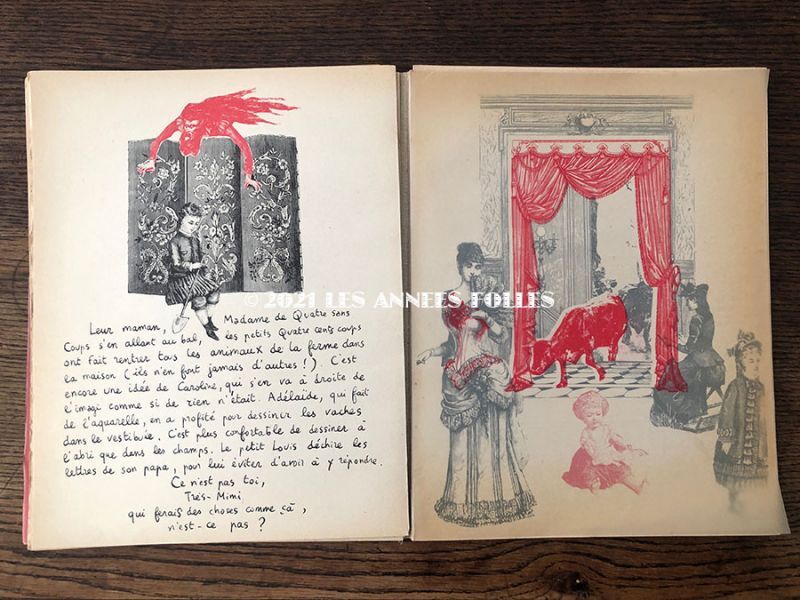 © 2021 LES ANNEES FOLLES
Leur maman, Madame de Quatre sans
Coups s'en allant au bal, les petits Quatre cents coups
ont fait rentrer tous les animaux de la ferme dans
la maison (ils n'en font jamais d'autres !). C'est
encore une idée de Caroline, qui s'en va à droite de
l'image comme si de rien n'était. Adélaïde, qui fait
de l'aquarelle, en a profité pour dessiner les vaches
dans le vestibule. C'est plus confortable de dessiner à
l'abri que dans les champs. Le petit Louis déchire les
lettres de son papa, pour lui éviter d'avoir à y répondre.
Ce n'est pas toi,
Très-Mimi
qui ferais des choses comme çà,
n'est-ce pas ?